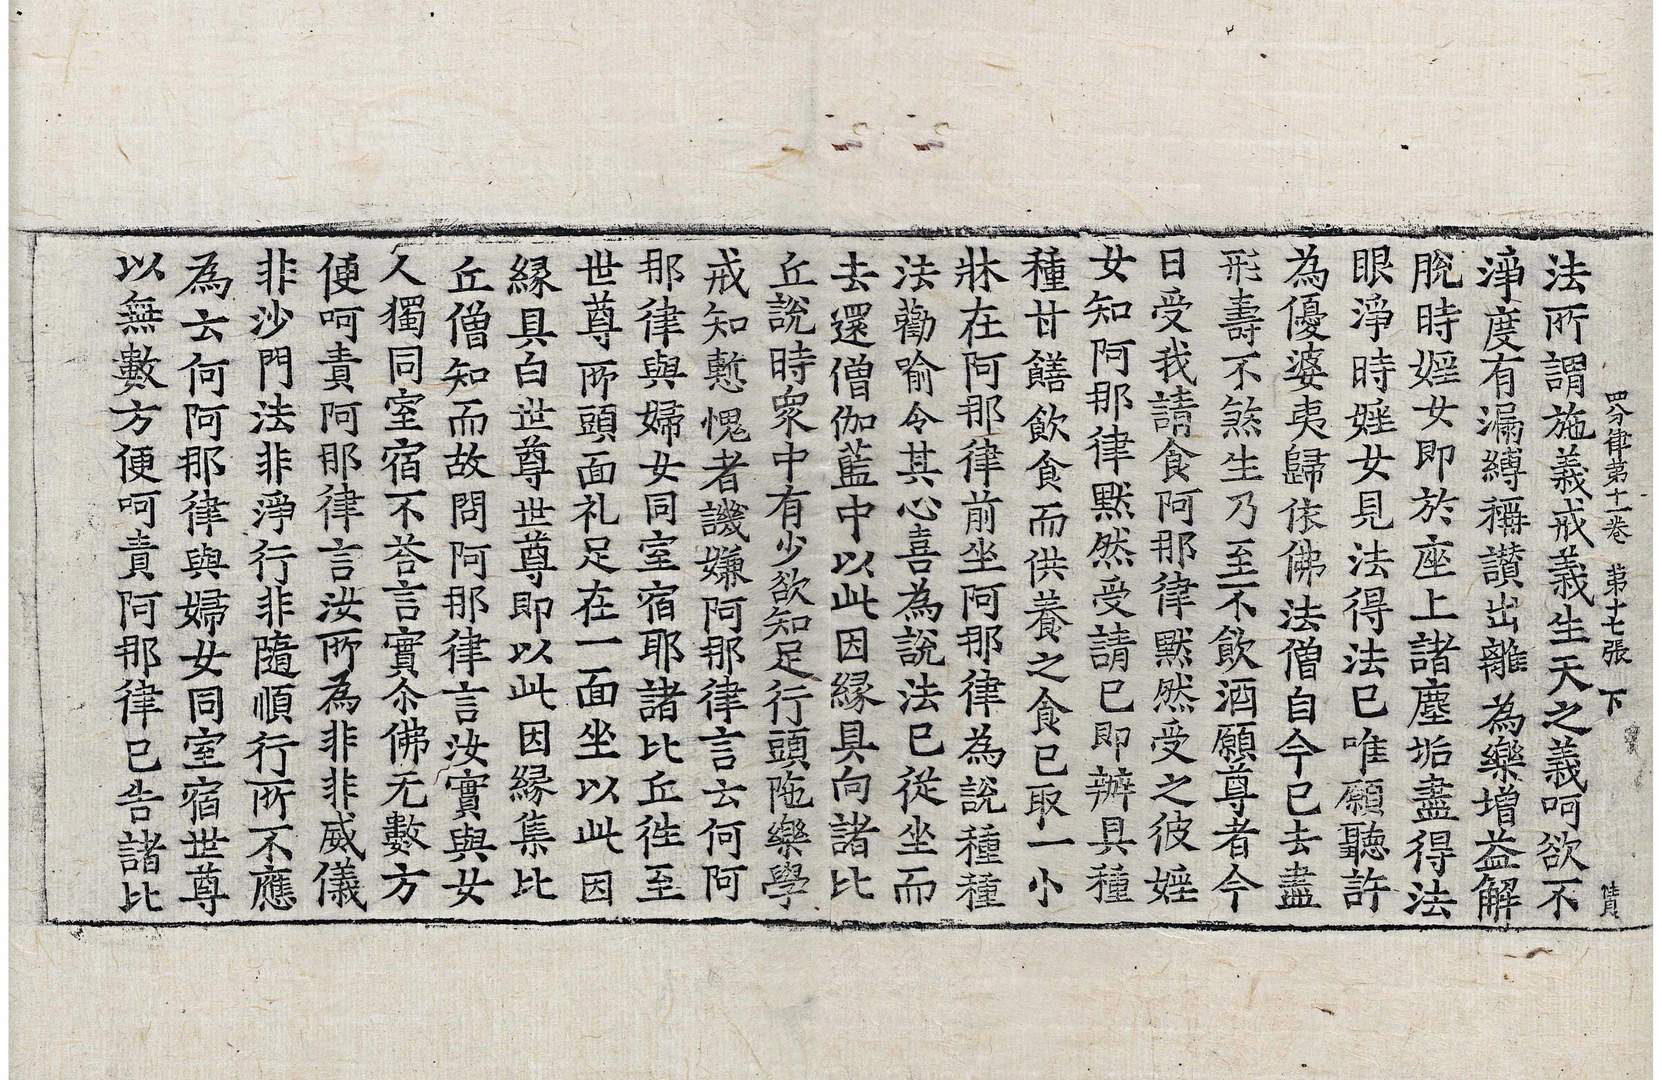 四分律第十一卷　第十七張　下
法所謂施義戒義生天之義呵欲不
淨度有漏縛稱讃出離為樂增益解
脫時婬女即於座上諸塵垢盡得法
眼淨時婬女見法得法已唯願聽許
為優婆夷歸依佛法僧自今已去盡
形壽不煞生乃至不飲酒願尊者今
日受我請食阿那律默然受之彼婬
女知阿那律默然受請已即辦具種
種甘饍飲食而供養之食已取一小
牀在阿那律前坐阿那律為說種種
法勸喻令其心喜為說法已從坐而
去還僧伽藍中以此因縁具向諸比
丘說時衆中有少欲知足行頭陁樂學
戒知慙愧者譏嫌阿那律言云何阿
那律與婦女同室宿耶諸比丘徃至
世尊所頭面礼足在一面坐以此因
縁具白世尊世尊即以此因縁集比
丘僧知而故問阿那律言汝實與女
人獨同室宿不荅言實尒佛无數方
便呵責阿那律言汝所為非非威儀
非沙門法非淨行非隨順行所不應
為云何阿那律與婦女同室宿世尊
以無數方便呵責阿那律已告諸比